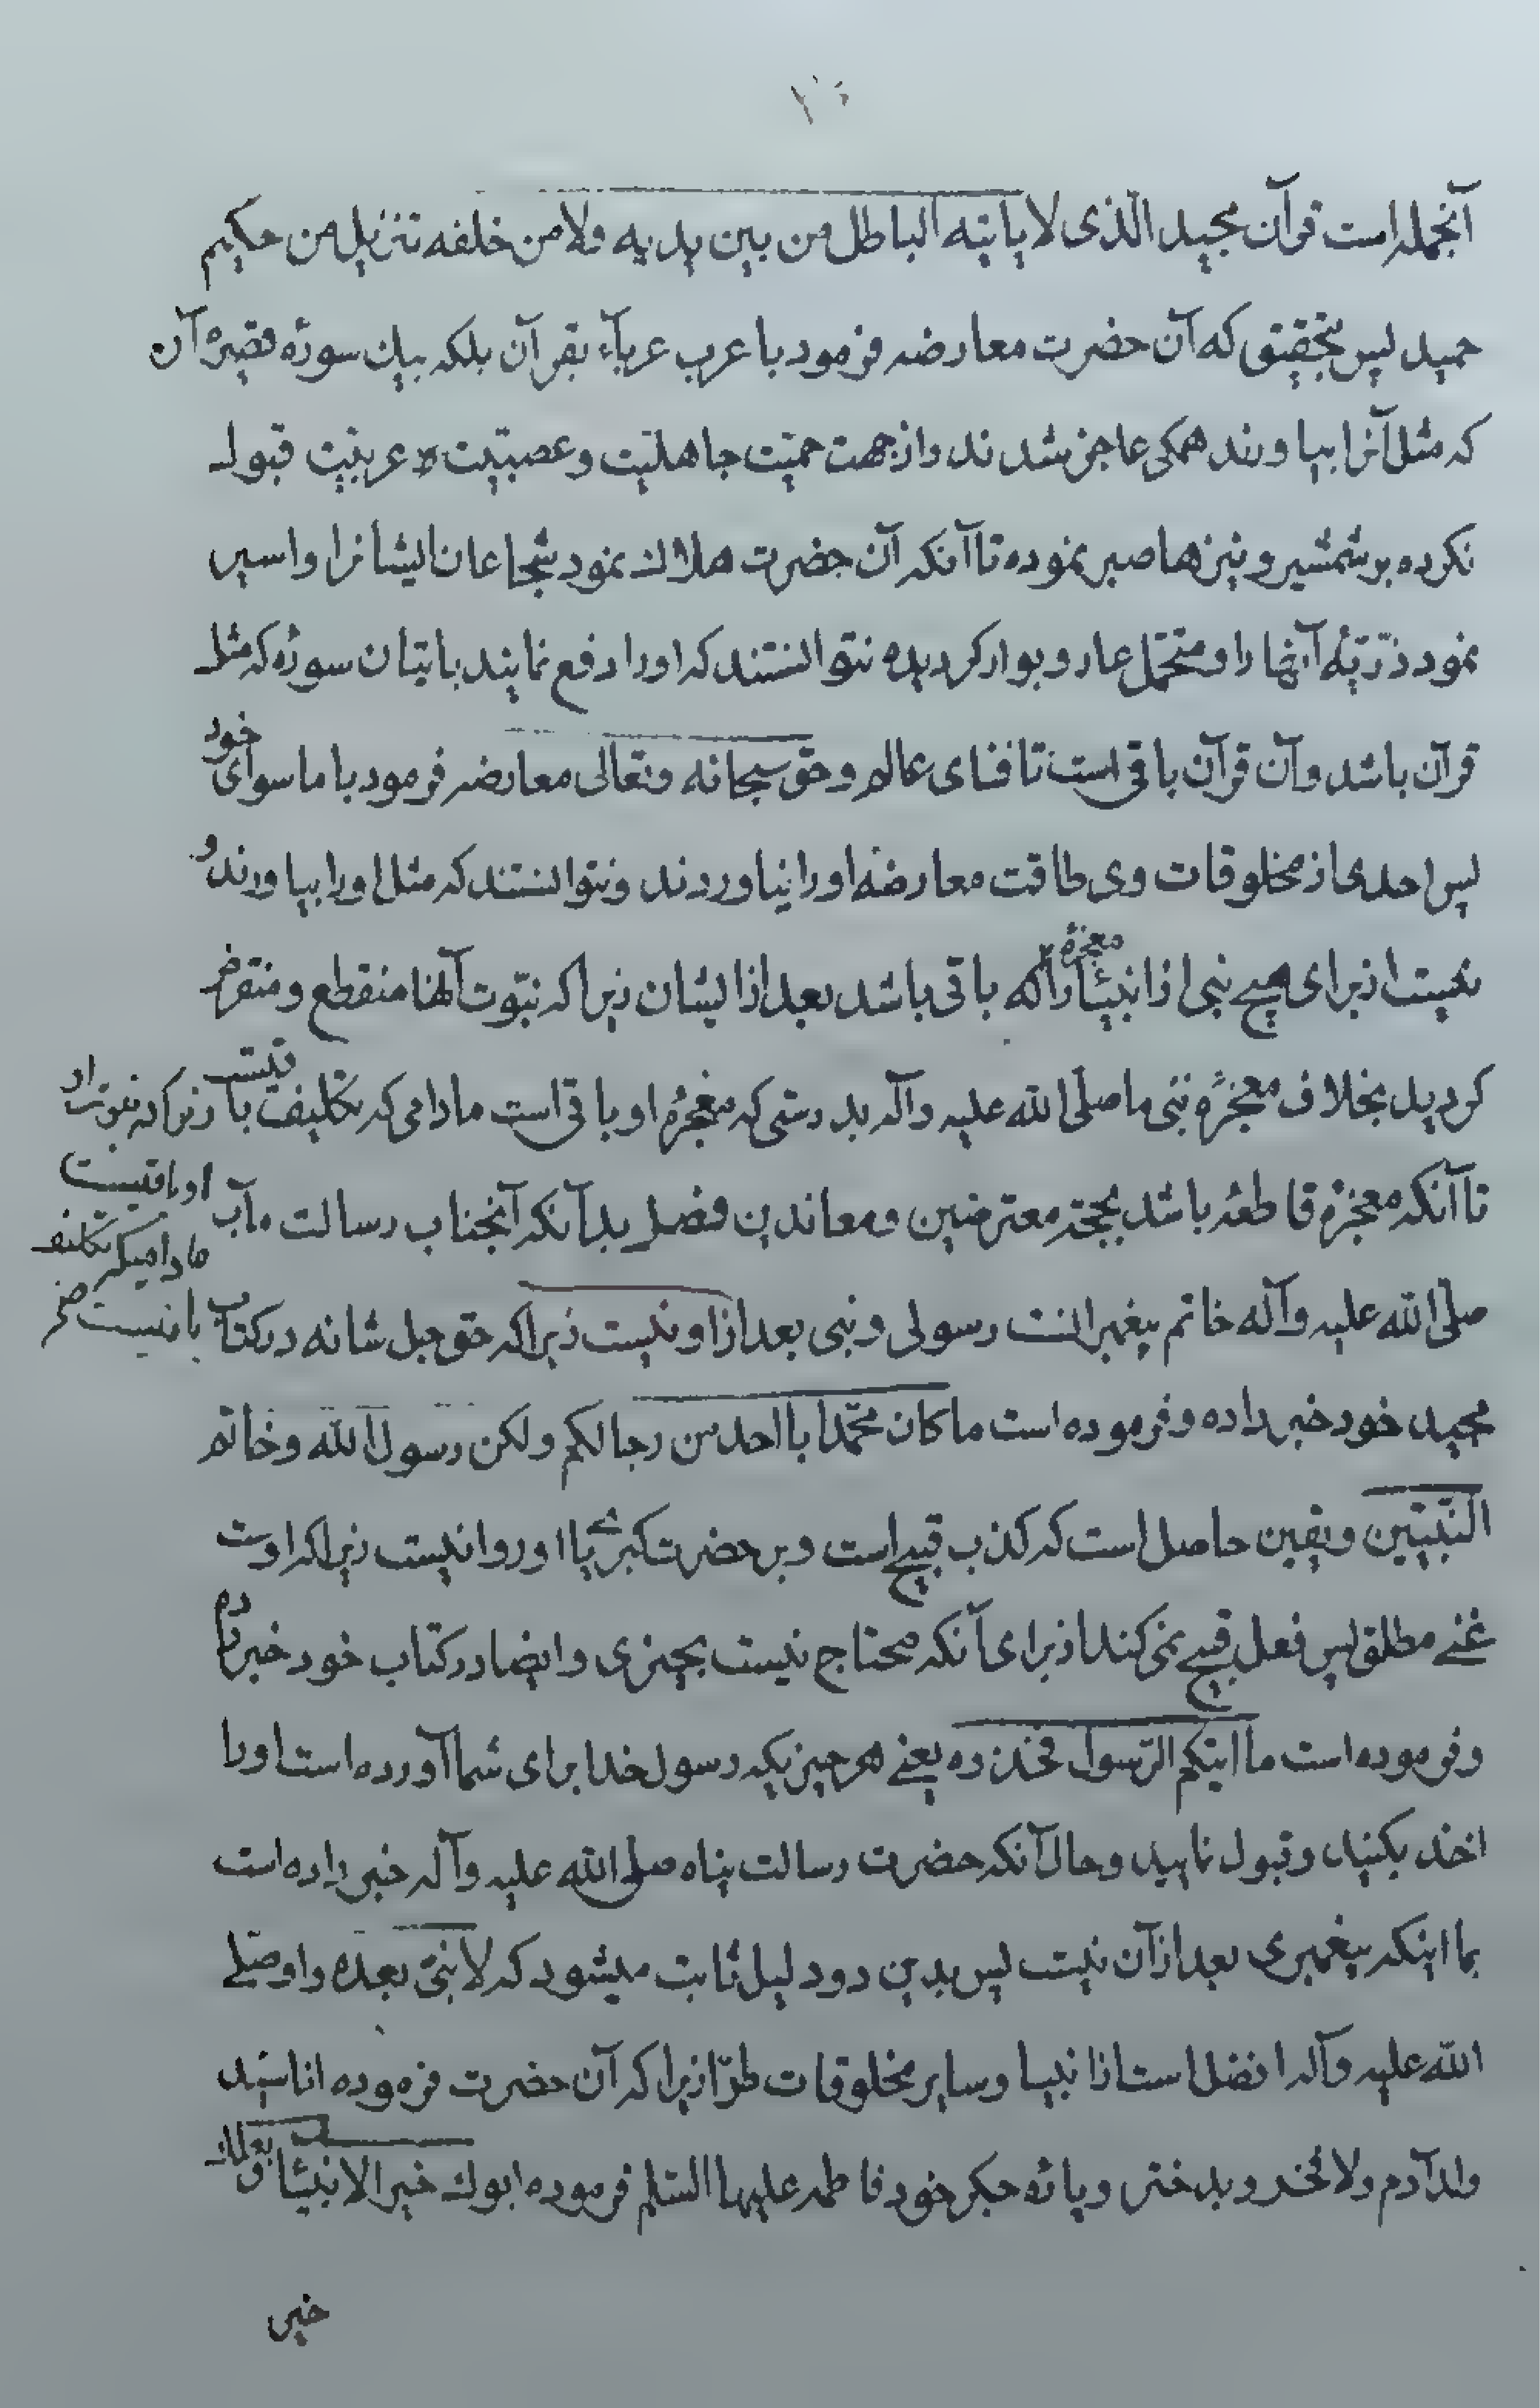 آنجمله است قرآن مجید الذی لا یاتیه الباطل من بین یدیه ولا من خلفه تنزیل من حکیم
حمید پس بتحقیق که آن حضرت معارضه فرمود با عرب عرباء بقرآن بلکه بیک سورۀ قصیرۀ آن
که مثل آنرا بیاورند همکی عاجز شدند و از جهت حمیّت جاهلیّت و عصبیّت عربیّت قبول
نکرده بر شمشیر و نیزها صبر نموده تا آنکه آن حضرت هلاک نمود شجاعان ایشانرا و اسیر
نمود ذرّیّۀ آنها را و متحمّل عار و بوار کردیده نتوانستند که او را دفع نمایند باتیان سورۀ که مثل
قرآن باشد و آن قرآن باقی است تا فنای عالم و حق سبحانه و تعالی معارضه فرمود با ماسوای خود
پس احدی از مخلوقات وی طاقت معارضۀ او را نیاوردند و نتوانستند که مثل او را بیاورند و
نیست از برای هیچ نبی از انبیا معجزۀ را که باقی باشد بعد از ایشان زیرا که نبوّت آنها منقطع و منقرض
کردید بخلاف معجزۀ نبی ما صلی الله علیه وآله بدرستی که معجزۀ او باقی است مادامی که تکلیف باقیست زیرا که نبوّت
او باقیست
مادامیکه تکلیف
باقیست
تا آنکه معجزۀ قاطعه باشد بحجة معترضین و معاندین فصل بدآنکه آنجناب رسالت مآب
صلی الله علیه وآله خاتم پیغمبرانست رسولی و نبی بعد از او نیست زیرا که حق جل شانه در کتاب
مجید خود خبر داده و فرموده است ما کان محمّد ابا احد من رجالکم ولکن رسول الله وخاتم
النّبیّین و یقین حاصل است که کذب قبیح است و بر حضرت کبریا او روا نیست زیرا که اوست
غنے مطلق پس فعل قبیح نمی کند از برای آنکه محتاج نیست بچیزی و ایضا در کتاب خود خبر داده
و فرموده است ما اتیکم الرّسول فخذوه یعنے هر چیزیکه رسول خدا برای شما آورده است او را
اخذ بکنید و قبول نمایید و حال آنکه حضرت رسالت پناه صلی الله علیه وآله خبر داده است
بما اینکه پیغمبری بعد از آن نیست پس بدین دو دلیل ثابت میشود که لا نبیّ بعده و او صلے
الله علیه وآله افضل است از انبیا و سایر مخلوقات طرّا زیرا که آن حضرت فرموده انا سیّد
ولد آدم ولا فخر و بدختر و پاره جکر خود فاطمه علیها السّلم فرموده ابوک خیر الانبیا و بعلک
خیر